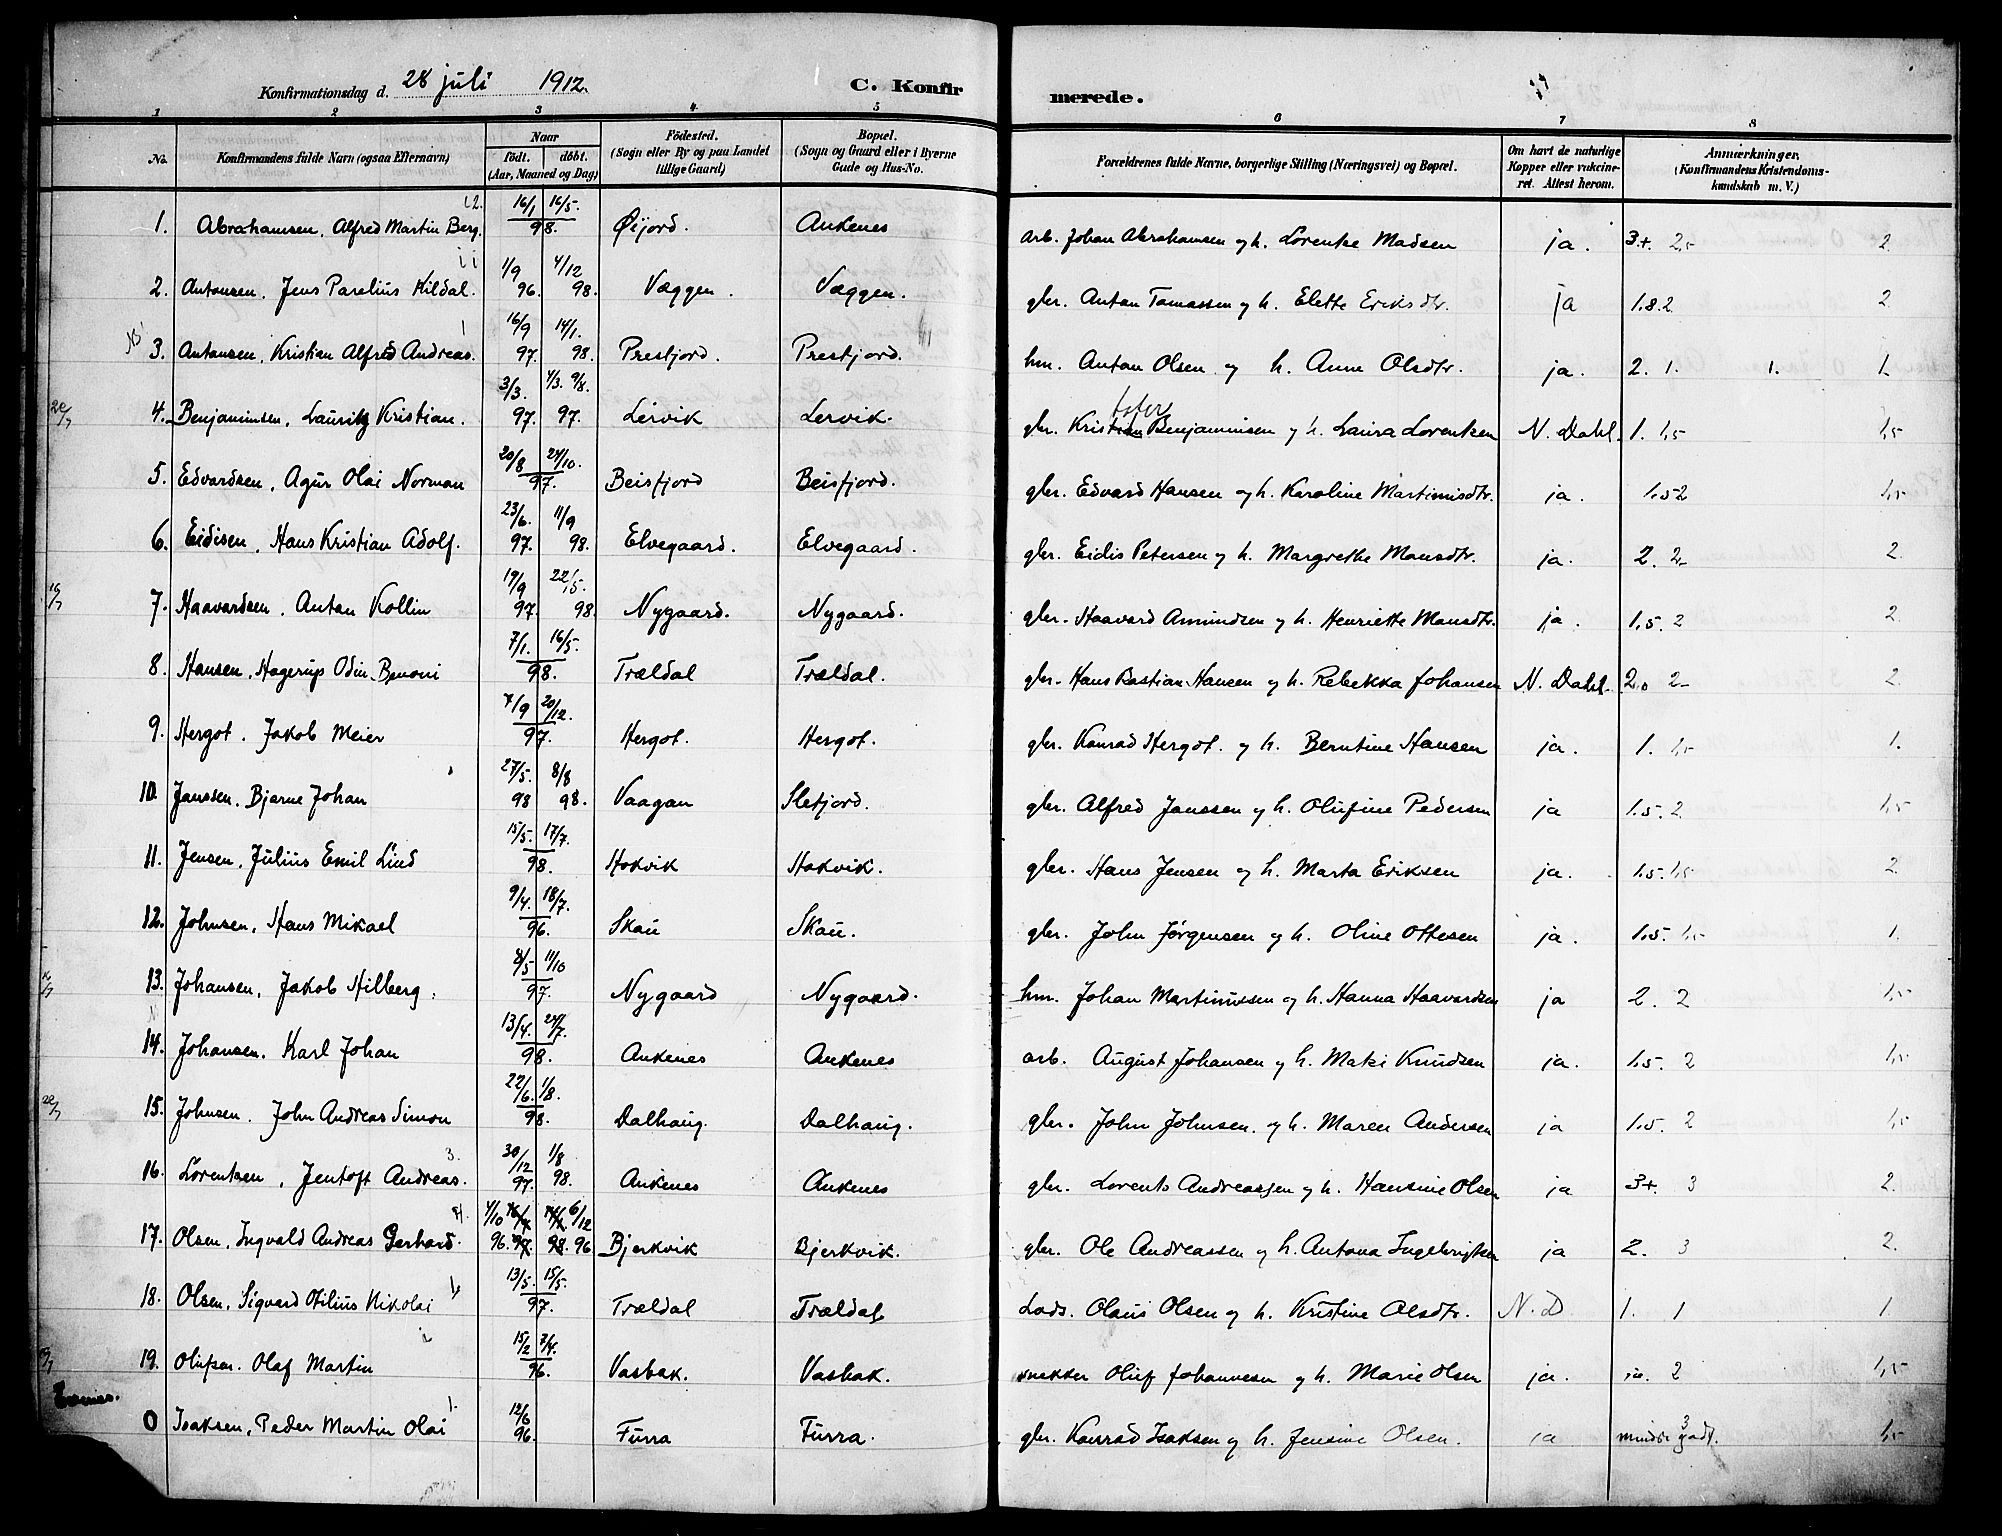 Konfirmationsdag d. 28 juli 1912. C. Konfir merede.
1 2 3 4 5 6 7 8
No. Konfirmandens fulde Navn (ogsaa Efternavn) Naar födt. döbt. (Aar, Maaned og Dag) Födested. (Sogn eller By og paa Landet tillige Gaard) Bopæl. (Sogn og Gaard eller i Byerne Gade og Hus-No. Forældrenes fulde Navne, borgerlige Stilling (Næringsvei) og Bopæl. Om havt de naturlige Kopper eller vakcineret. Attest herom. Anmærkninger. (Konfirmandens Kristendomskundskab m. V.)
1. Abrahamsen, Alfred Martin Berg. 16/1 16/5. 98. Øijord. Ankenes arb. Johan Abrahamsen og h. Lorentse Madsen ja. 3+. 2,5 2.
2. Antonsen, Jens Parelius Hildal. 1/9 96. 4/12 98. Væggen. Væggen. gbr. Anton Tomassen og h. Elette Eriksdtr. ja 1.8.2. 2
3. Antonsen, Kristian Alfred Andreas. 16/9 97. 14/1. 98. Prestjord. Prestjord. hm. Anton Olsen og h. Anne Olsdtr. ja. 2. 1. 1. 1.
4. Benjaminsen, Lauritz Kristian. 3/3. 97. 4/3. 9/8. 97. Lervik Lervik. gbr. Kristofer Benjaminsen og h. Laura Lorentsen N. Dahl. 1. 1,5 1,5
5. Edvardsen, Agur Olai Norman 20/8 24/10. 97. Beisfjord Beisfjord. gbr. Edvard Hansen og h. Karoline Martinisdtr. ja. 1.5 2 1,5
6. Eidisen, Hans Kristian Adolf. 23/6. 97. 11/9 98. Elvegaard. Elvegaard. gbr. Eidis Petersen og h. Margrethe Monsdtr. ja. 2. 2- 2.
7. Haavardsen, Anton Kollin 19/9 97. 22/5. 98. Nygaard. Nygaard. gbr. Haavard Amundsen og h. Henriette Monsdtr. ja. 1.5. 2 2.
8. Hansen, Hagerup Odin Benoni 7/1. 16/5. 98. Trældal Trældal. gbr. Hans Bastian Hansen og h. Rebekka Johansen N. Dahl. 2. 2- 2.
9. Hergot, Jakob Meier 7/9 20/12. 97. Hergot. Hergot. gbr. Konrad Hergot. og h. Berntine Hansen ja. 1. 1,5 1.
10. Janssen, Bjarne Johan 27/5. 98 8/8 98. Vaagan Sletjord. gbr. Alfred Janssen og h. Olufine Pedersen ja 1.5. 2 1,5
11. Jensen, Julius Emil Lind 15/5. 17/7. 98. Hokvik Hokvik. gbr. Hans Jensen og h. Marta Eriksen ja. 1.5. 1,5 2.
12. Johnsen, Hans Mikael 9/4. 18/7. 96. Skau Skau. gbr. John Jørgensen og h. Oline Ottesen ja. 1.5. 1,5 1.
13. Johansen, Jakob Hilberg. 8/5 11/10 97. Nygaard Nygaard. hm. Johan Martinussen og h. Hanna Haavardsen ja 2. 2 1,5
14. Johansen, Karl Johan 13/4. 24/7. 98. Ankenes Ankenes arb. August Johansen og h. Maki Knudsen ja. 1.5. 2 1,5
15. Johnsen. John Andreas Simon 22/6. 1/8. 98. Dalhaug. Dalhaug. gbr. John Johnsen og h. Maren Andersen ja 1.5. 2 1,5
16. Lorentsen, Jentoft Andreas. 3. 30/12 97. 1/8 98. Ankenes Ankenes gbr. Lorents Andreassen og h. Hansine Olsen ja 3+. 3 2.
17. Olsen, Ingvald Andreas Gerhard. 4/10 96. 97. 98. 6/12 96 Bjerkvik Bjerkvik. gbr. Ole Andreassen og h. Antona Ingebrigtsen ja 2. 3 2.
18. Olsen, Sigvard Otilius Nikolai 13/5. 15/5. 97. Trældal Trældal Lods. Olaus Olsen og h. Kristine Olsdtr. N. D 1. 1 1
19. Olufsen. Olaf Martin 15/2 7/4. 96. Vasbak. Vasbak. snekker Oluf Johannesen og h. Marie Olsen ja. 2 1,5
Evenes.
0 Isaksen, Peder Martin Olai 1. 12/6 96. Furra Furra. gbr. Konrad Isaksen og h. Jensine Olsen. ja mindre godt. 3 1,5